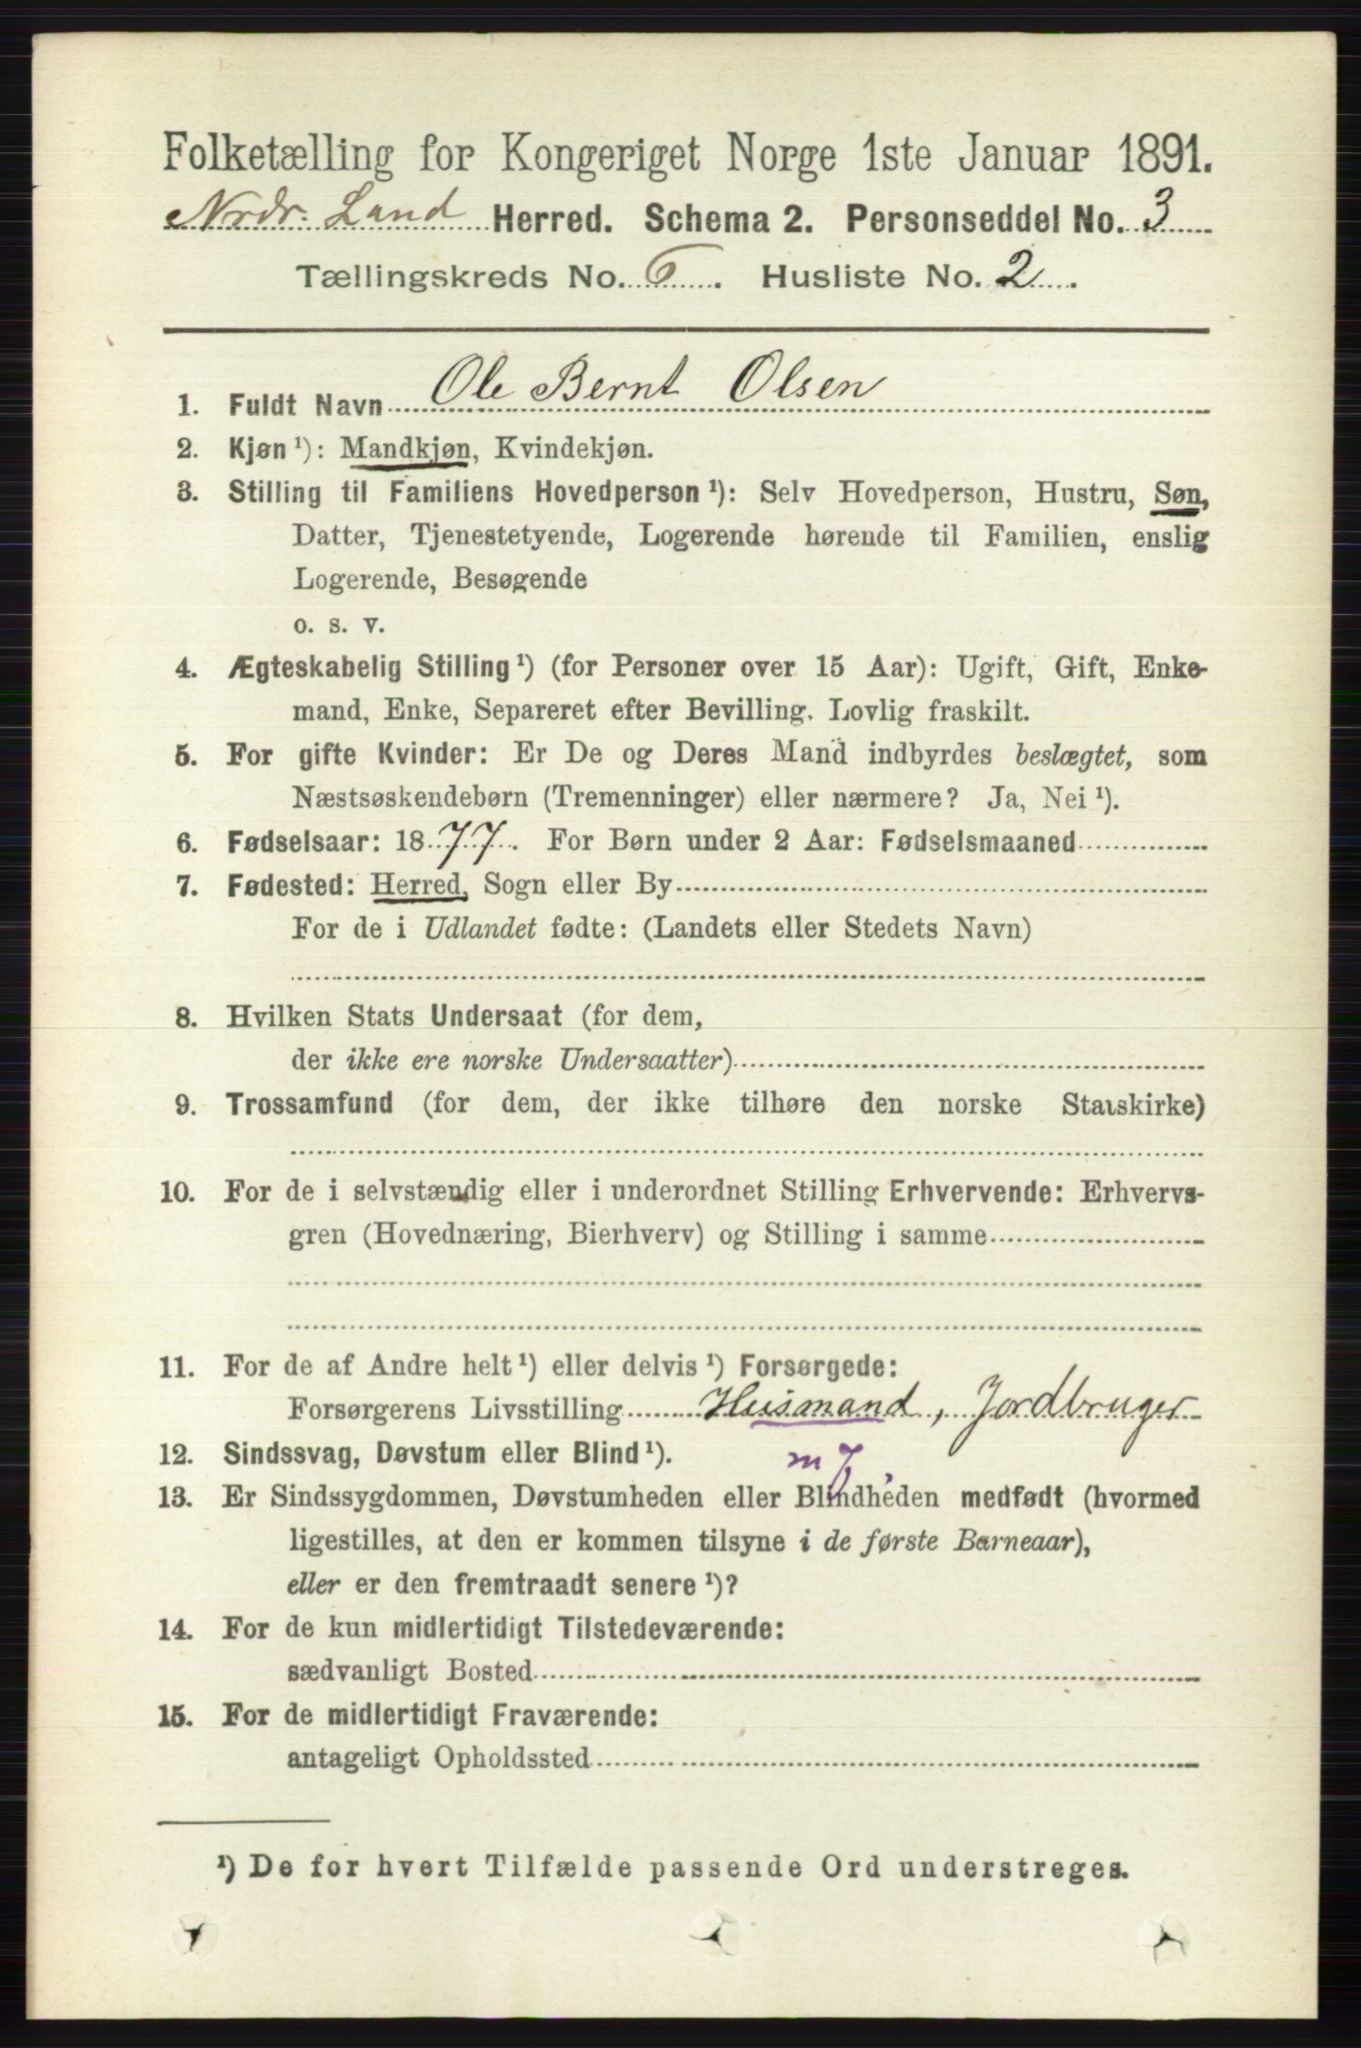 Folketælling for Kongeriget Norge 1ste Januar 1891.
Nrdr. Land Herred. Schema 2. Personseddel No. 3
Tællingskreds No. 6. Husliste No. 2.
1. Fuldt Navn Ole Bernt Olsen
2. Kjøn ¹): Mandkjøn, Kvindekjøn.
3. Stilling til Familiens Hovedperson ¹): Selv Hovedperson, Hustru, Søn,
Datter, Tjenestetyende, Logerende hørende til Familien, enslig
Logerende, Besøgende
o. s. v.
4. Ægteskabelig Stilling ¹) (for Personer over 15 Aar): Ugift, Gift, Enke-
mand, Enke, Separeret efter Bevilling. Lovlig fraskilt.
5. For gifte Kvinder: Er De og Deres Mand indbyrdes beslægtet, som
Næstsøskendebørn (Tremenninger) eller nærmere? Ja, Nei ¹).
6. Fødselsaar: 1877. For Børn under 2 Aar: Fødselsmaaned
7. Fødested: Herred, Sogn eller By
For de i Udlandet fødte: (Landets eller Stedets Navn)
8. Hvilken Stats Undersaat (for dem,
der ikke ere norske Undersaatter)
9. Trossamfund (for dem, der ikke tilhøre den norske Statskirke)
10. For de i selvstændig eller i underordnet Stilling Erhvervende: Erhvervs-
gren (Hovednæring, Bierhverv) og Stilling i samme
11. For de af Andre helt ¹) eller delvis ¹) Forsørgede:
Forsørgerens Livsstilling Husmand, Jordbruger
12. Sindssvag, Døvstum eller Blind ¹). m J
13. Er Sindssygdommen, Døvstumheden eller Blindheden medfødt (hvormed
ligestilles, at den er kommen tilsyne i de første Barneaar),
eller er den fremtraadt senere ¹)?
14. For de kun midlertidigt Tilstedeværende:
sædvanligt Bosted
15. For de midlertidigt Fraværende:
antageligt Opholdssted
¹) De for hvert Tilfælde passende Ord understreges.